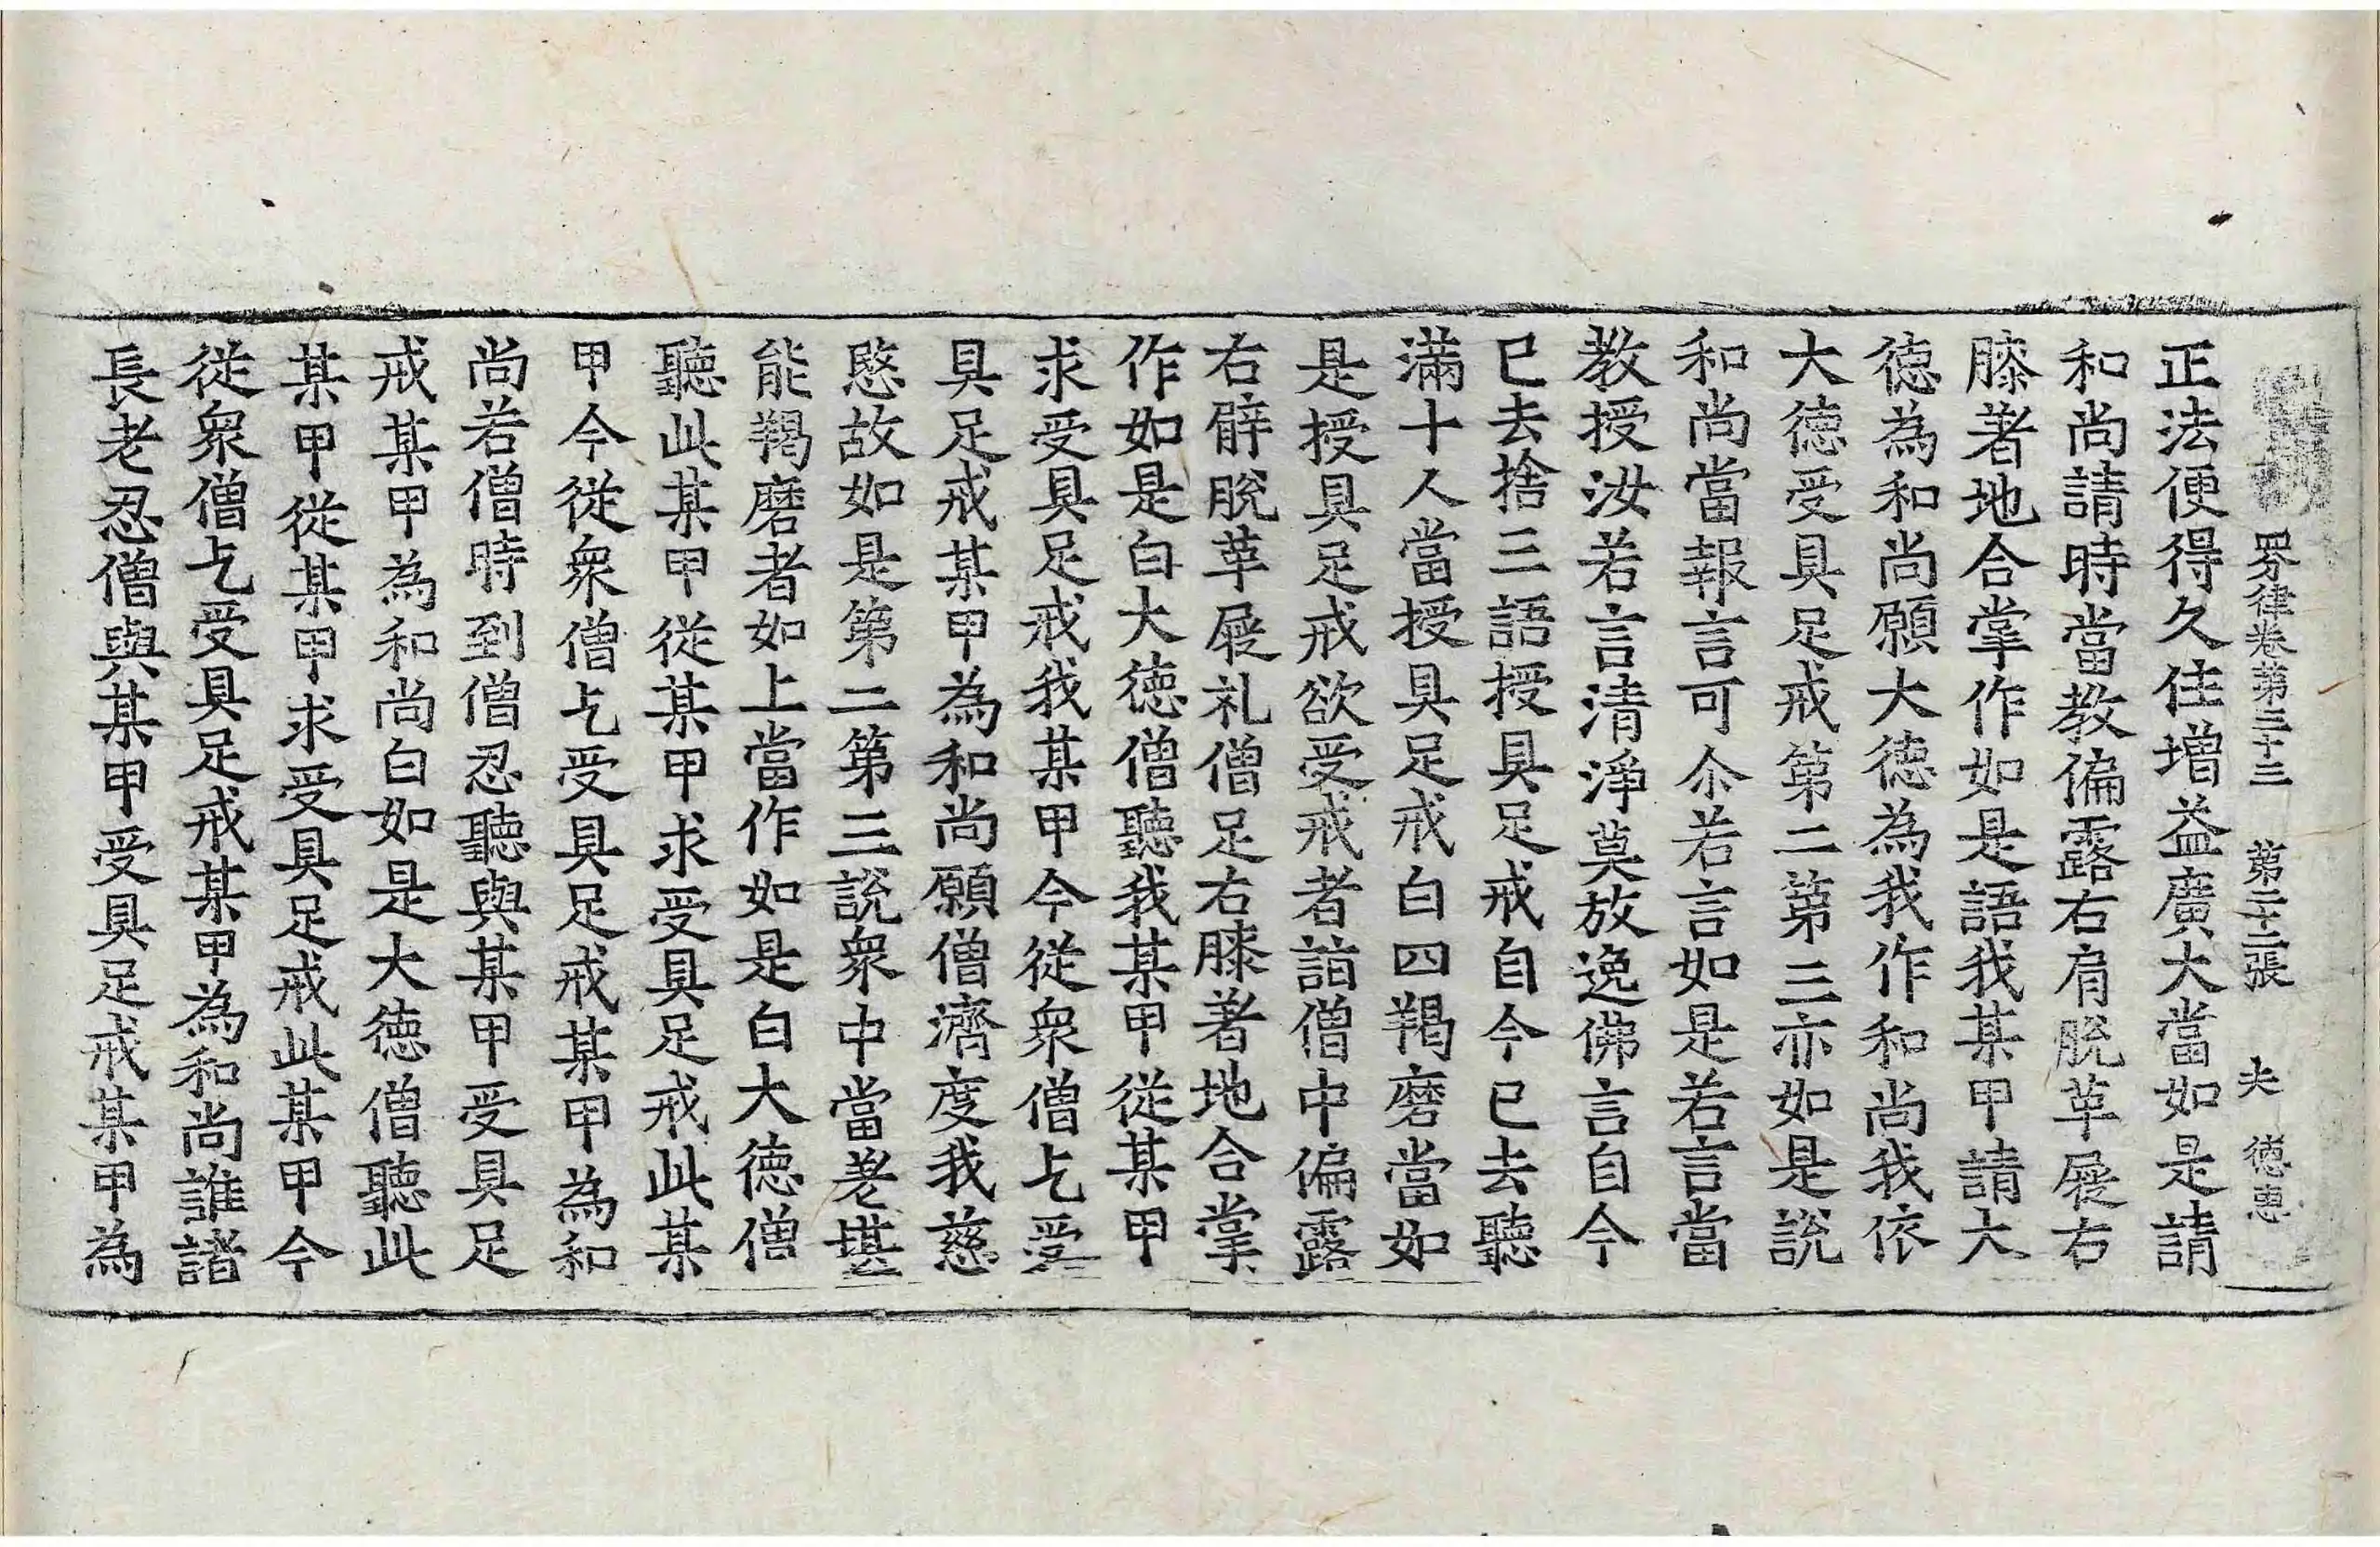 四分律卷第三十三 第二十二張 夫 徳惠
正法便得久住增益廣大當如是請
和尚請時當教偏露右肩脫革屣右
膝著地合掌作如是語我某甲請大
徳為和尚願大徳為我作和尚我依
大徳受具足戒第二第三亦如是說
和尚當報言可尒若言如是若言當
教授汝若言清淨莫放逸佛言自今
已去捨三語授具足戒自今已去聽
滿十人當授具足戒白四羯磨當如
是授具足戒欲受戒者詣僧中偏露
右臂脫革屣礼僧足右膝著地合掌
作如是白大徳僧聽我某甲從某甲
求受具足戒我某甲今從衆僧乞受
具足戒某甲為和尚願僧濟度我慈
愍故如是第二第三說衆中當差堪
能羯磨者如上當作如是白大徳僧
聽此某甲從某甲求受具足戒此某
甲今從衆僧乞受具足戒某甲為和
尚若僧時到僧忍聽與某甲受具足
戒某甲為和尚白如是大徳僧聽此
某甲從某甲求受具足戒此某甲今
從衆僧乞受具足戒某甲為和尚誰諸
長老忍僧與某甲受具足戒某甲為